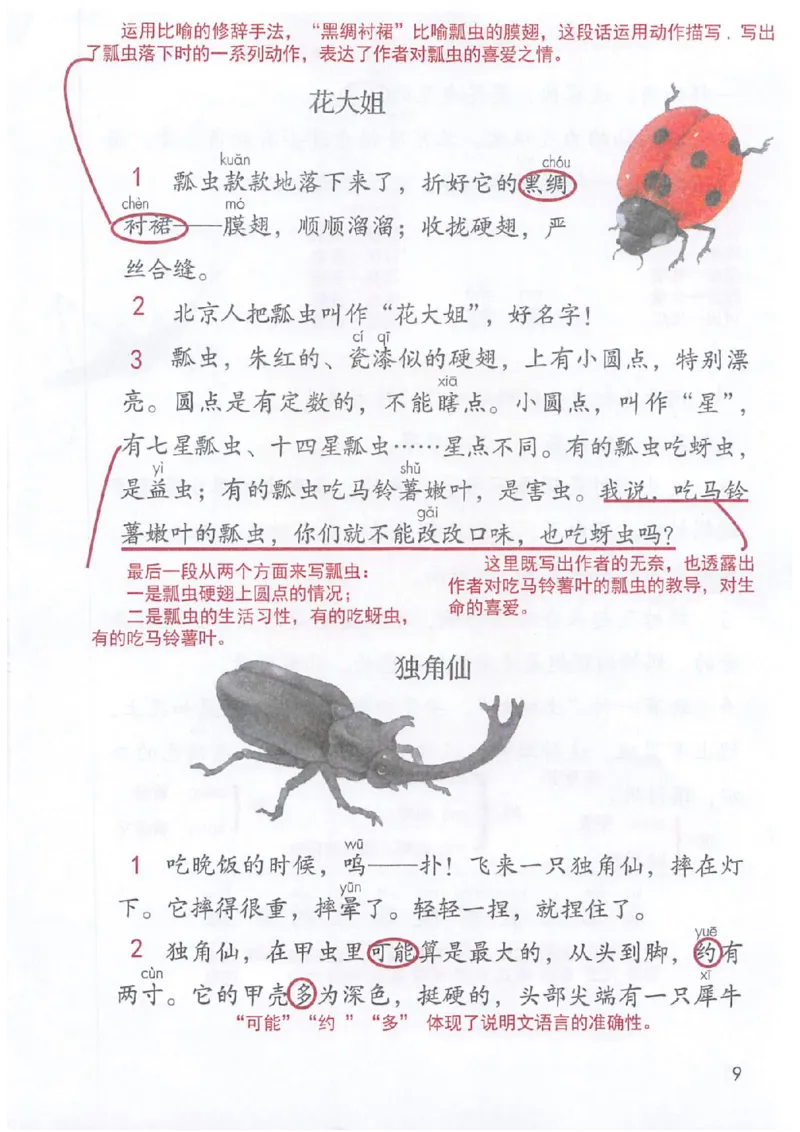 运用比喻的修辞手法，“黑绸衬裙”比喻瓢虫的膜翅，这段话运用动作描写．写出
了瓢虫落下时的一系列动作，表达了作者对瓢虫的喜爱之情。
花大姐
kuān chóu
1 瓢虫款款地落下来了，折好它的黑绸
chèn mó
衬裙——膜翅，顺顺溜溜；收拢硬翅，严
丝合缝。
2 北京人把瓢虫叫作“花大姐”，好名字！
cí qī
3 瓢虫，朱红的、瓷漆似的硬翅，上有小圆点，特别漂
xiā
亮。圆点是有定数的，不能瞎点。小圆点，叫作“星”，
有七星瓢虫、十四星瓢虫……星点不同。有的瓢虫吃蚜虫，
yì shǔ
是益虫；有的瓢虫吃马铃薯嫩叶，是害虫。我说，吃马铃
gǎi
薯嫩叶的瓢虫，你们就不能改改口味，也吃蚜虫吗？
最后一段从两个方面来写瓢虫：
一是瓢虫硬翅上圆点的情况；
二是瓢虫的生活习性，有的吃蚜虫，
有的吃马铃薯叶。
这里既写出作者的无奈，也透露出
作者对吃马铃薯叶的瓢虫的教导，对生
命的喜爱。
独角仙
wū
1 吃晚饭的时候，呜——扑！飞来一只独角仙，摔在灯
yūn
下。它摔得很重，摔晕了。轻轻一捏，就捏住了。
yuē
2 独角仙，在甲虫里可能算是最大的，从头到脚，约有
cùn xī
两寸。它的甲壳多为深色，挺硬的，头部尖端有一只犀牛
“可能”“约 ”“多” 体现了说明文语言的准确性。
9